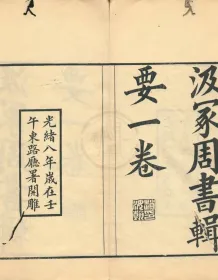 汲冢周書輯
要一卷
光緒八年歲在壬
午東路廳署開雕